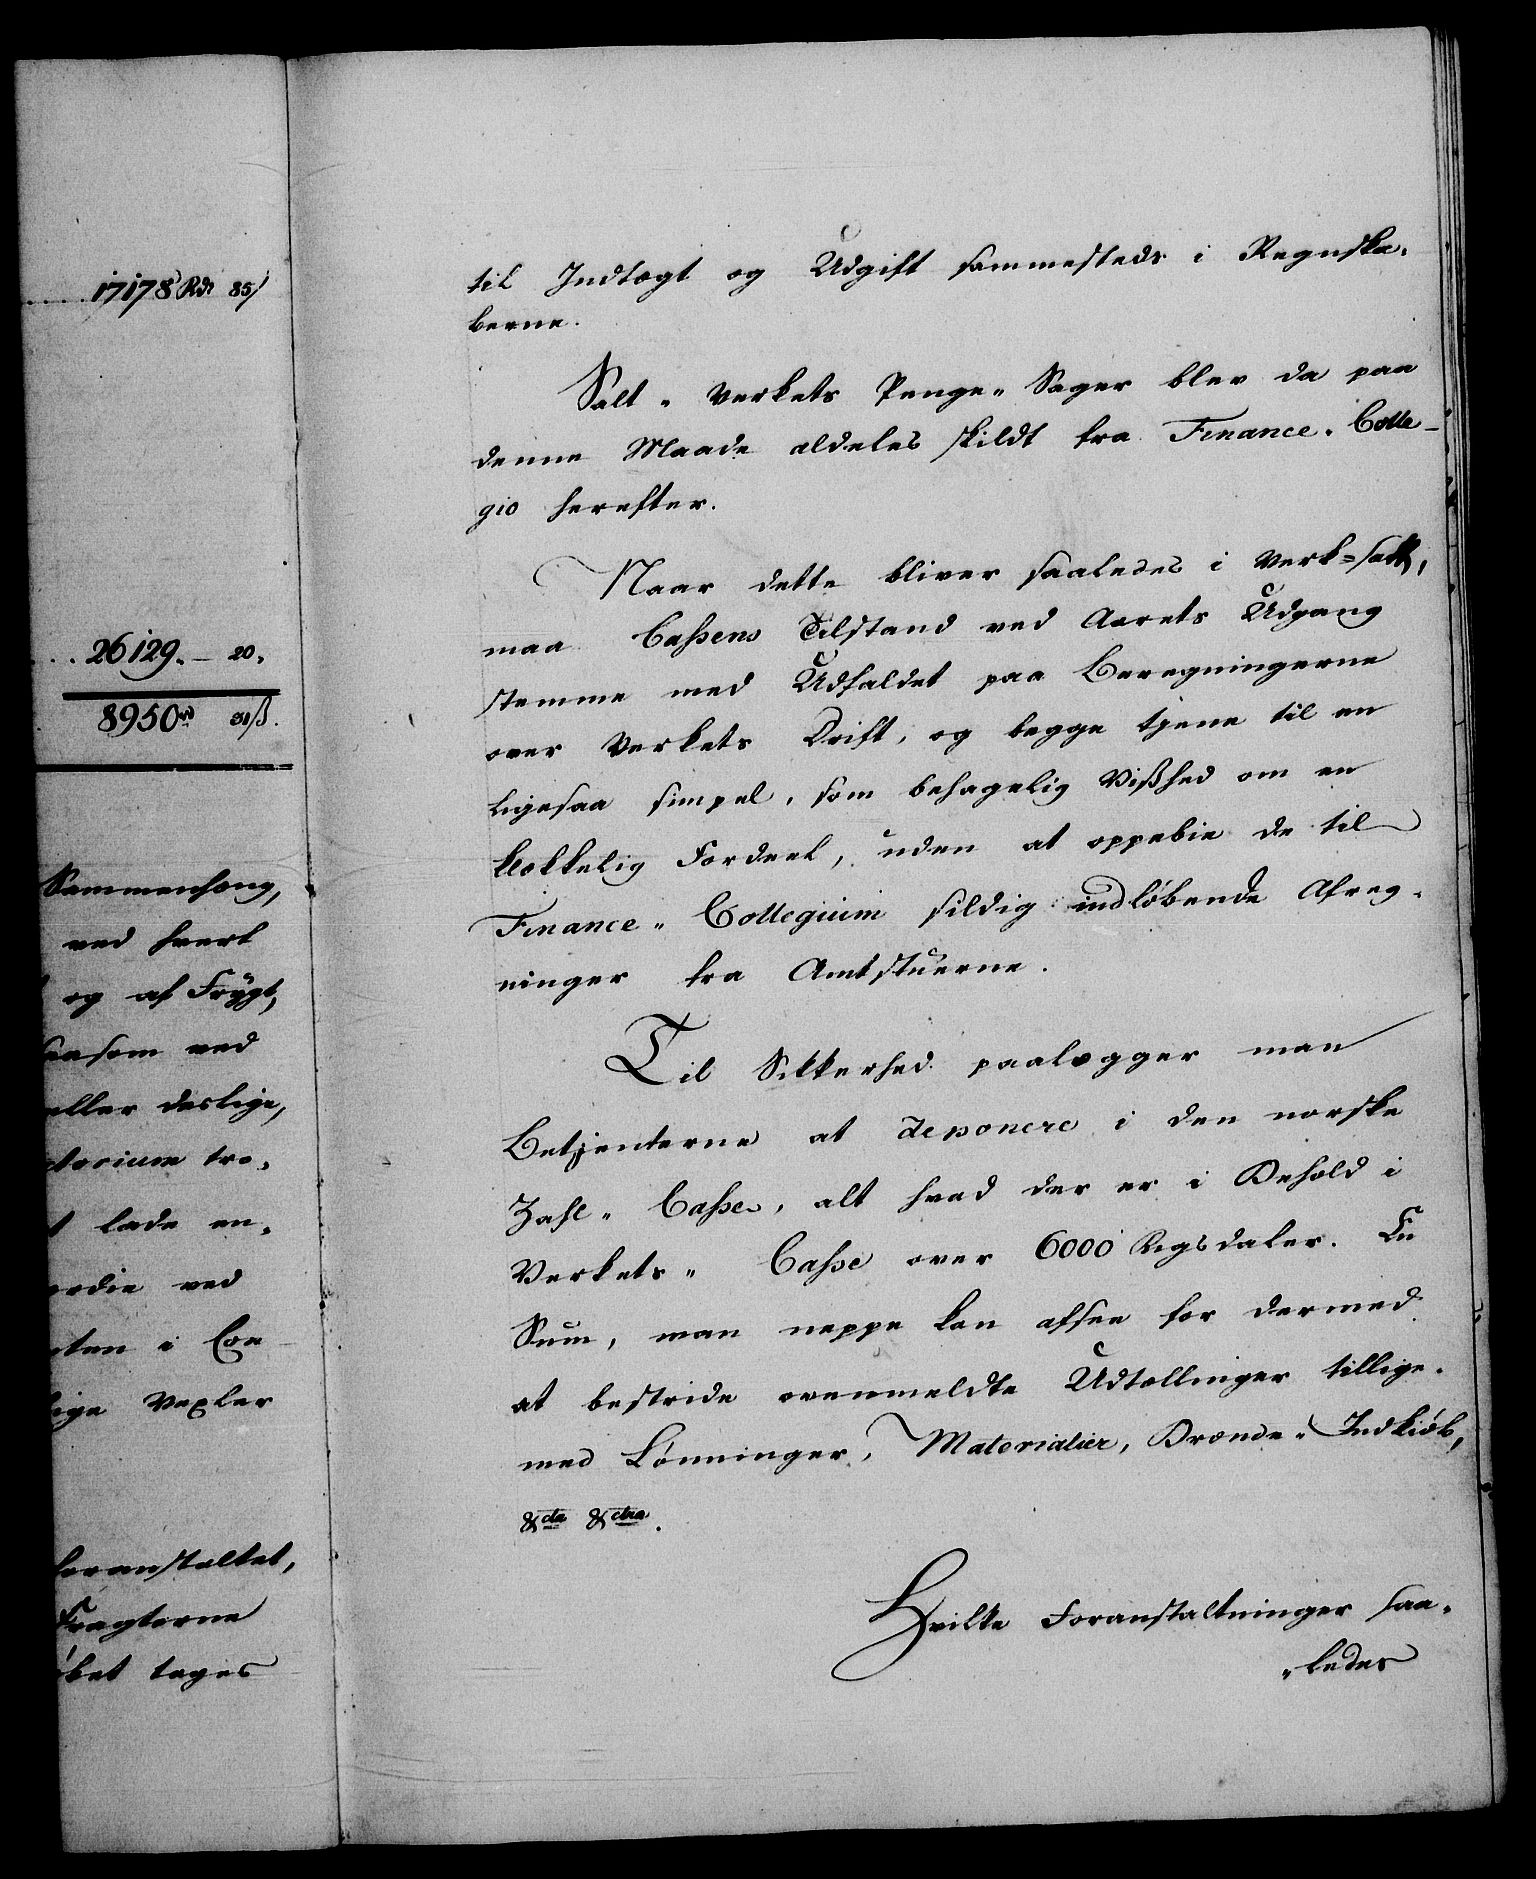 17178 Rdr 85/
26129. — 20.
8950 rd 31ß.
Sammenhæng,
ved hvert
og af Frygt,
saasom ved
eller deslige,
ctorium tra-
t lade en-
ærdie ved
ten i Con
lige Vexler
foranstaltet,
Fragterne
øbet tages
til Indtægt og Udgift sammesteds i Regnska-
berne.
Salt-Verkets Penge-Sager blev da paa
denne Maade aldeles skildt fra Finance-Colle-
gio herefter.
Naar dette bliver saaledes i Verk=satt,
maa Cassens Tilstand ved Aarets Udgang
stemme med Udfaldet paa Beregningerne
over Verkets Drift, og begge tjene til en
ligesaa simpel, som behagelig Vißhed om en
klækkelig Fordeel, uden at oppebie de til
Finance-Collegium sildig indløbende Afreg-
ninger fra Amtstuerne.
Til Sikkerhed paalægger man
Betjenterne at deponere i den norske
Zahl-Casse, alt hvad der er i Behold i
Verkets-Casse over 6000 Rigsdaler. En
Sum, man neppe kan afsee for dermed
at bestride ovenmeldte Udtællinger tillige-
med Lønninger, Materialier, Brænde-Indkiøb,
&cta &ctra.
Hvilke Foranstaltninger saa-
-ledes